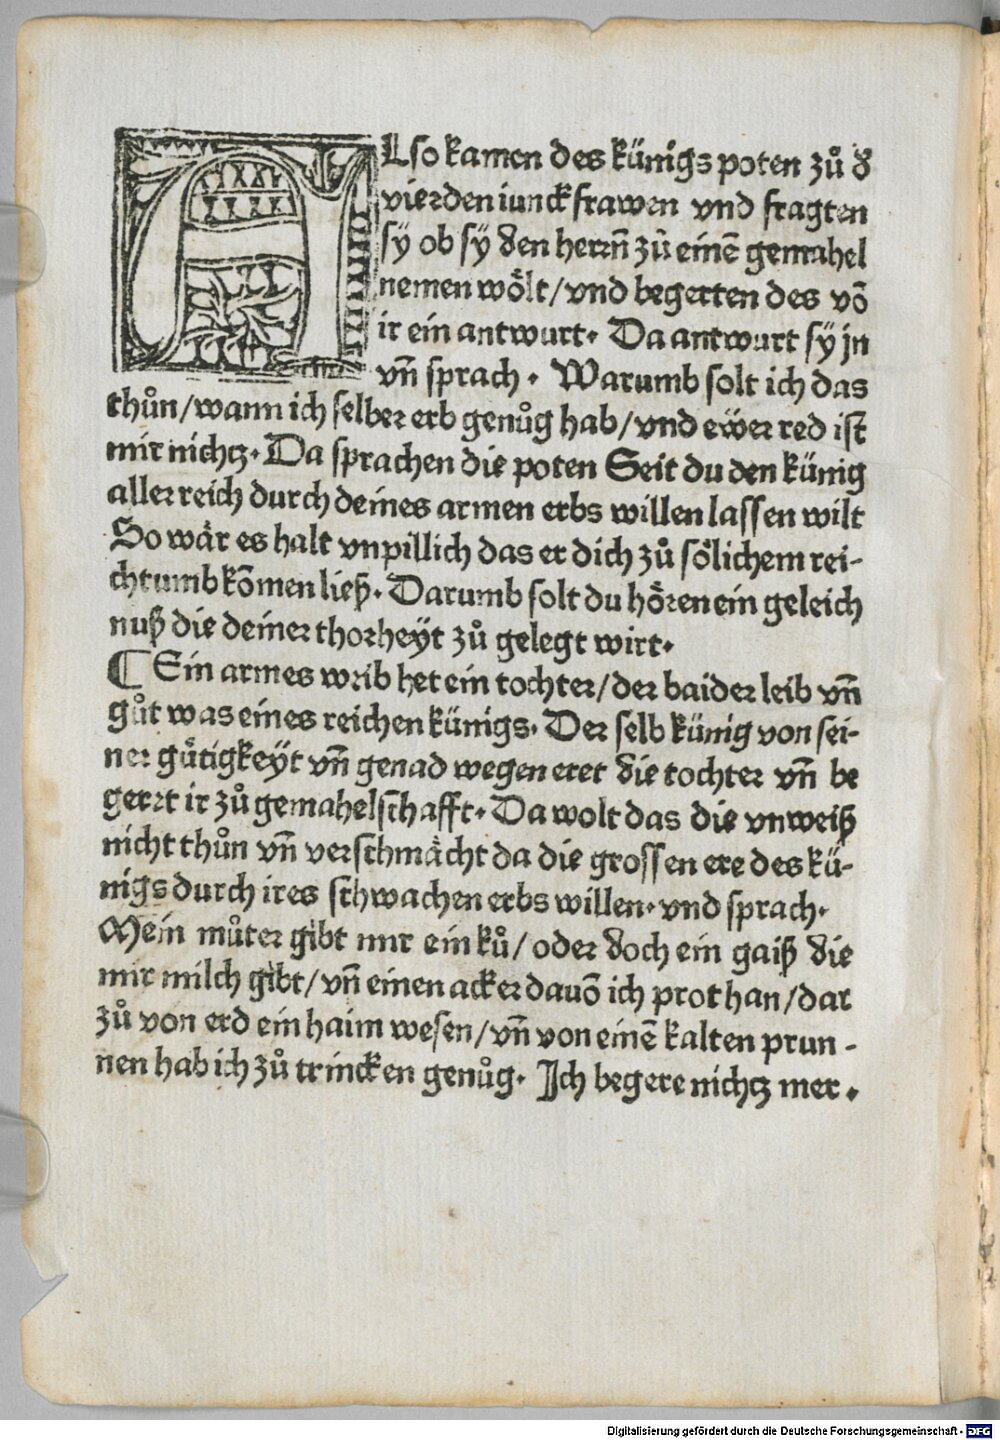 ALso kamen des künigs poten zů d̕
vierden iunckfrawen vnd fragten
sÿ ob sÿ den herrñ zů einē gemahel
nemen wölt/vnd begerten des vō
ir ein antwurt. Da antwurt sÿ jn
vñ sprach. Warumb solt ich das
thůn/wann ich selber erb genůg hab/vnd ewer red ist
mir nichcz. Da sprachen die poten Seit du den künig
aller reich durch deines armen erbs willen lassen wilt
So wär es halt vnpillich das er dich zů sölichem rei-
chtumb kōmen ließ. Darumb solt du hören ein geleich
nuß die deiner thorheÿt zů gelegt wirt.
¶ Ein armes weib het ein tochter/der baider leib vñ
gůt was eines reichen künigs. Der selb künig von sei-
ner gütigkeÿt vñ genad wegen eret die tochter vñ be
gerrt ir zů gemahelschafft. Da wolt das die vnweiß
nicht thůn vñ verschmächt da die grossen ere des kü-
nigs durch ires schwachen erbs willen. vnd sprach.
Mein můter gibt mir ein ků/oder doch ein gaiß die
mir milch gibt/vñ einen acker dauō ich prot han/dar
zů von erd ein haim wesen/vñ von einē kalten prun-
nen hab ich zů trincken genůg. Ich begere nichcz mer.
Digitalisierung gefördert durch die Deutsche Forschungsgemeinschaft - DFG